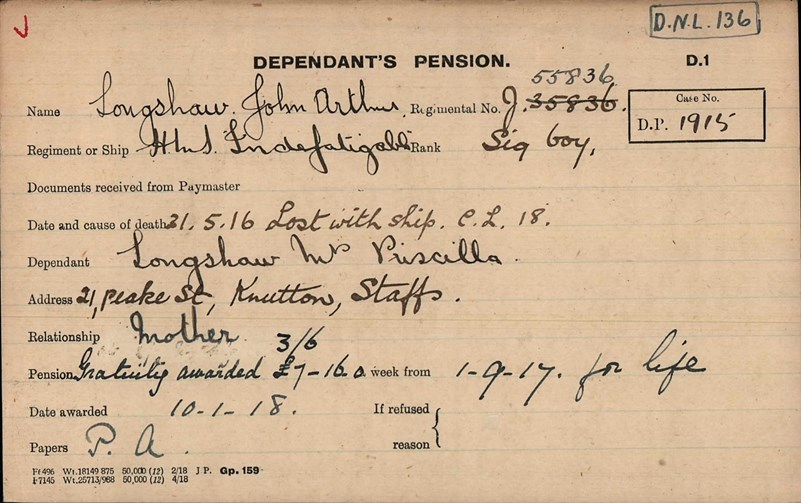 D.N.L. 136
DEPENDANT'S PENSION.
D.1
55836
Name Longshaw. John Arthur. Regimental No. J. 35836.
Case No.
D.P. 1915
Regiment or Ship H.M.S. Indefatigable Rank Sig boy.
Documents received from Paymaster
Date and cause of death 31.5.16 Lost with ship. C.L. 18.
Dependant Longshaw Mrs Priscilla.
Address 21, Peake St, Knutton, Staffs.
Relationship Mother
3/6
Pension Gratuity awarded £7-16.0 week from 1-9-17. for life
Date awarded 10-1-18. If refused
reason
Papers P. A.
Ft 496 Wt.18149 875 50,000 (12) 2/18 J P. Gp. 159
F7145 Wt.25713/968 50,000 (12) 4/18